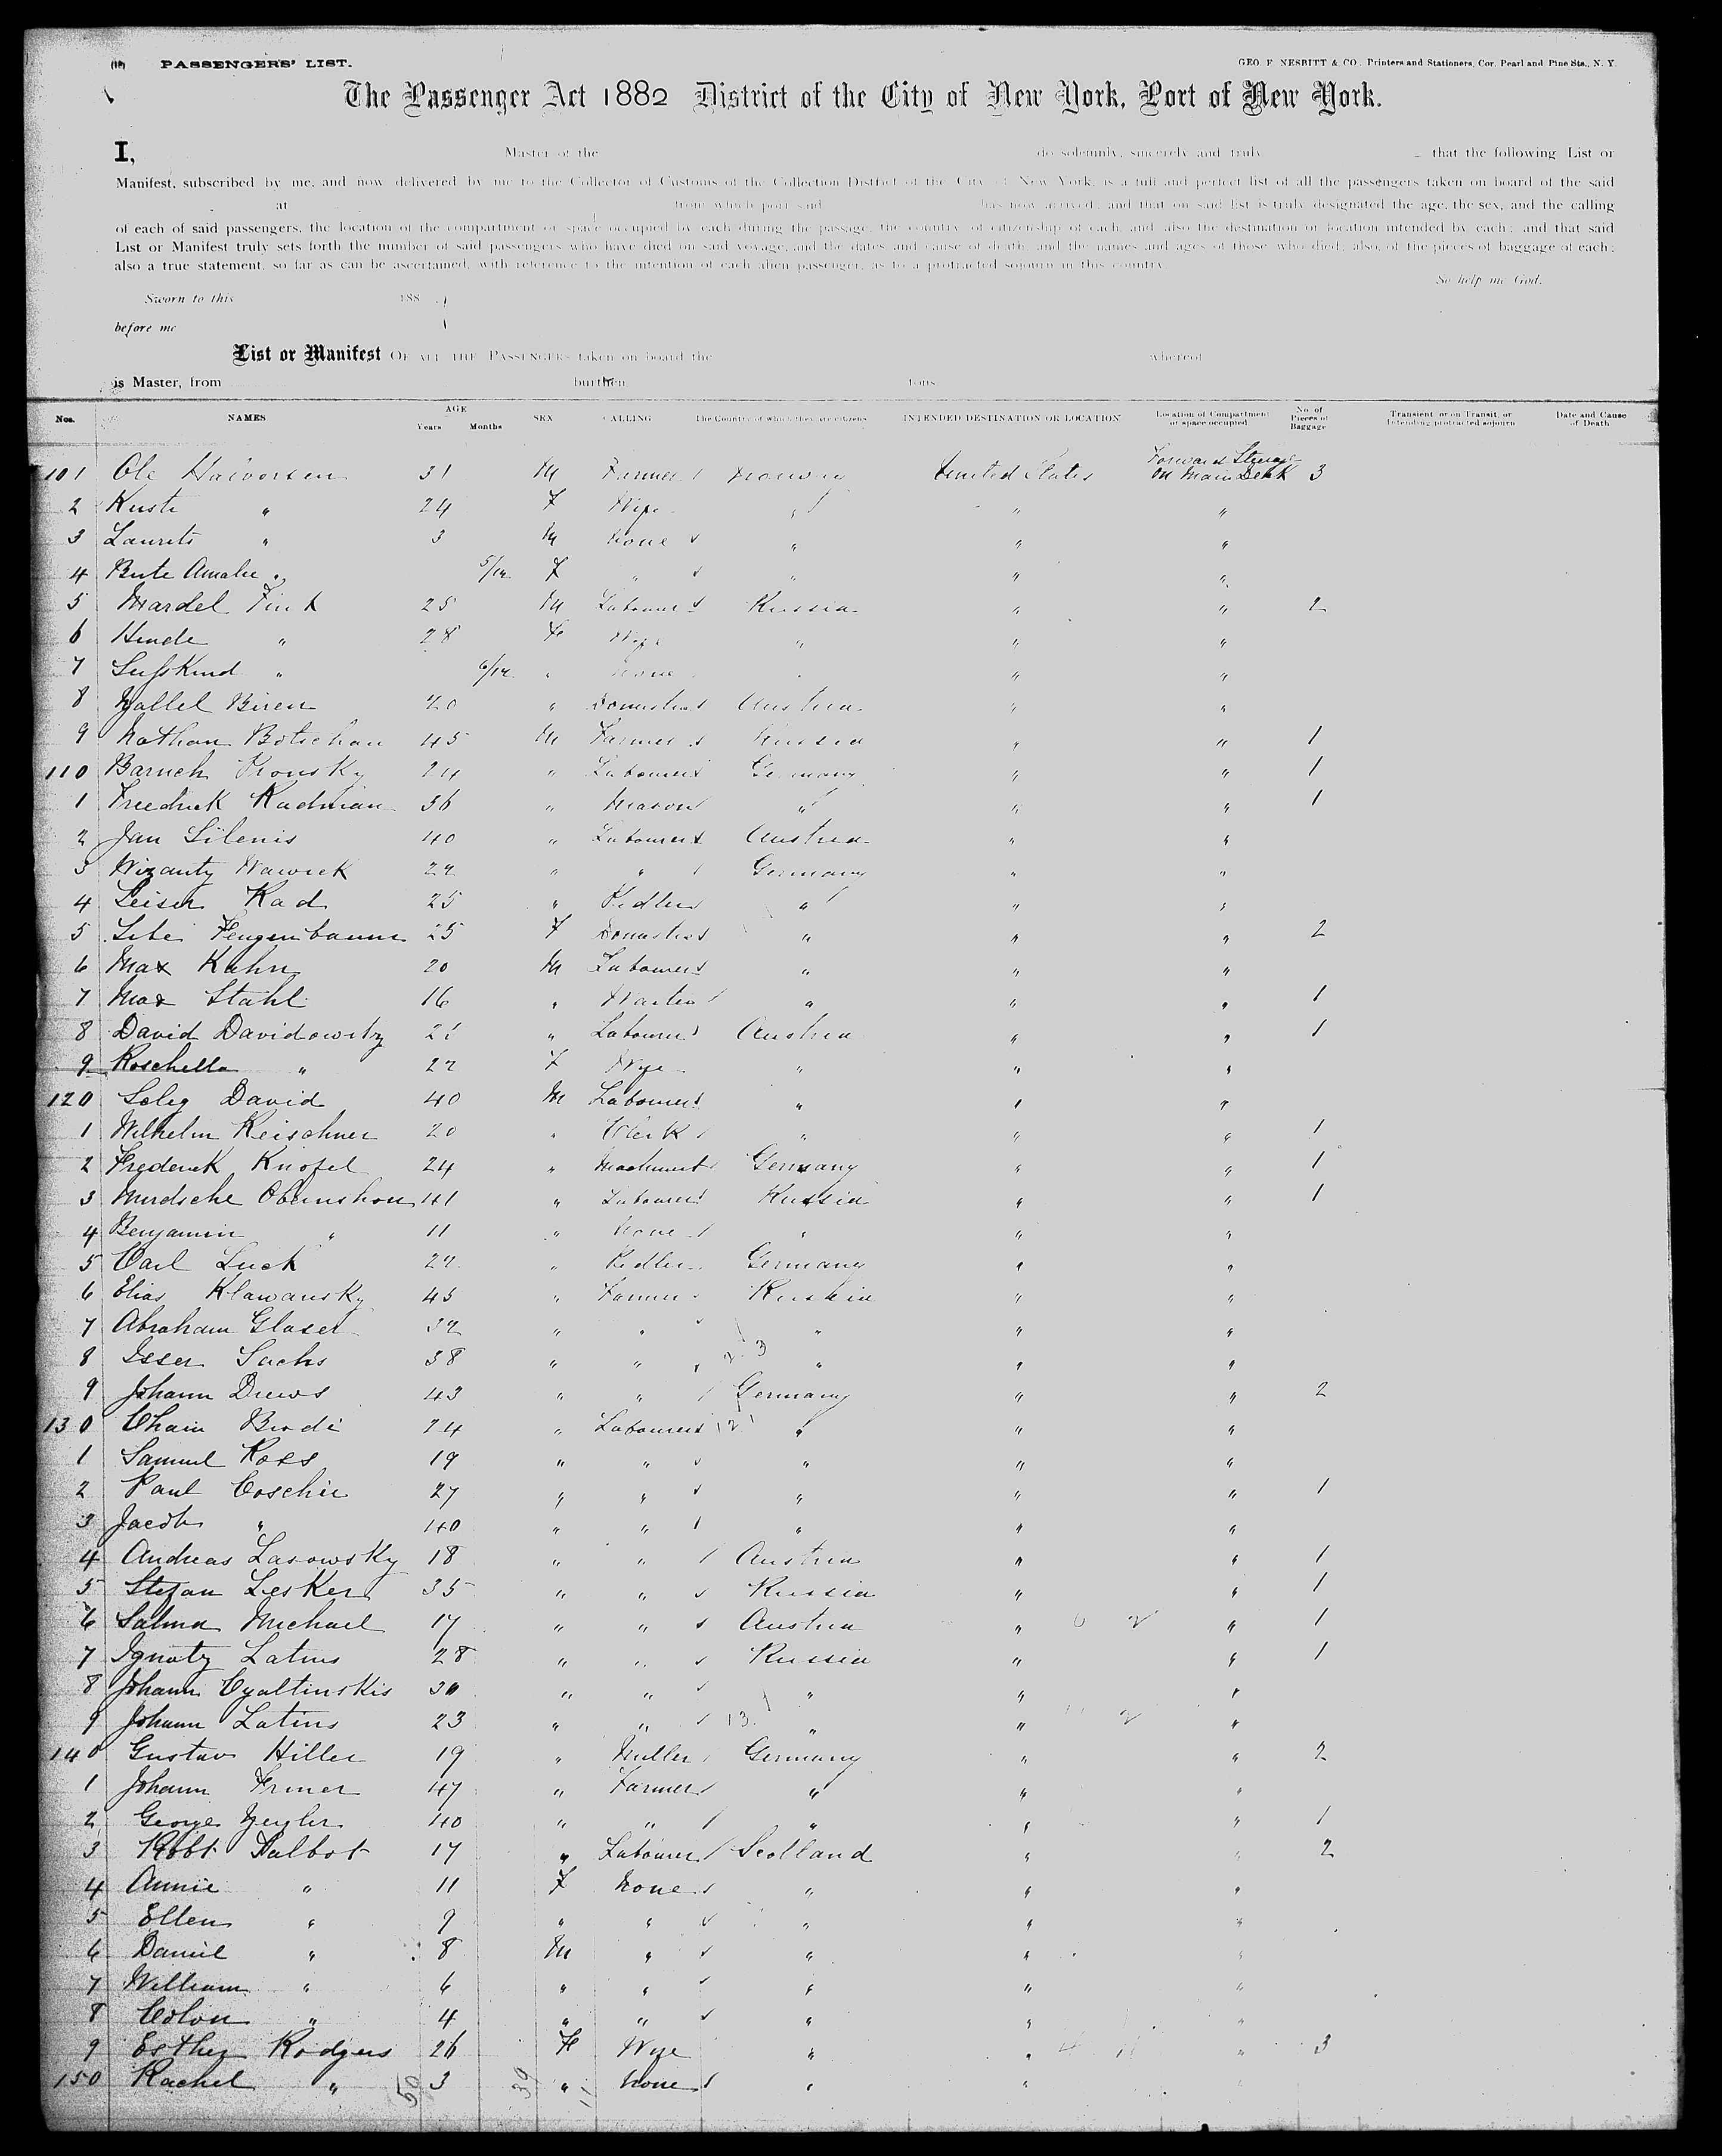 (18) PASSENGERS' LIST. GEO. F. NESBITT & CO., Printers and Stationers, Cor. Pearl and Pine Sts., N. Y.
The Passenger Act 1882 District of the City of New York, Port of New York.
I, Master of the do solemnly, sincerely and truly that the following List or
Manifest, subscribed by me, and now delivered by me to the Collector of Customs of the Collection District of the City of New York, is a full and perfect list of all the passengers taken on board of the said
at from which port said has now arrived; and that on said list is truly designated the age, the sex, and the calling
of each of said passengers, the location of the compartment or space occupied by each during the passage, the country of citizenship of each, and also the destination or location intended by each; and that said
List or Manifest truly sets forth the number of said passengers who have died on said voyage, and the dates and cause of death, and the names and ages of those who died; also, of the pieces of baggage of each;
also a true statement, so far as can be ascertained, with reference to the intention of each alien passenger, as to a protracted sojourn in this country
So help me God.
Sworn to this 188
before me
List or Manifest OF ALL THE PASSENGERS taken on board the whereof
is Master, from burthen tons
Nos. NAMES AGE Years Months SEX CALLING The Country of which they are citizens INTENDED DESTINATION OR LOCATION Location of Compartment or space occupied No. of Pieces of Baggage Transient, or on Transit, or Intending protracted sojourn Date and Cause of Death
101 Ole Halvorsen 31 M Farmer Norway United States Forward Steerage on Main Deck 3
2 " 24 F Wife " " "
3 Laurits " 3 M None " " "
4 Amalie " 5/12 F " " " "
5 Mardel Fink 25 M Labourer Russia " " 2
6 Hinde " 28 F Wife " " "
7 Susskind " 6/12 " None " " "
8 Biren 20 " Domestic Austria " "
9 Nathan Botschan 45 M Farmer Russia " " 1
110 Baruch Pronsky 24 " Labourer Germany " " 1
1 Friedrick Radman 36 " Mason " " " 1
2 Jan Silenis 40 " Labourer Austria " "
3 Wizanty Wawrek 22 " " Germany " "
4 Leiser Rad 25 " Pedler " " "
5 Libe Feugenbaum 25 F Domestic " " " 2
6 Max Kahn 20 M Labourer " " "
7 Max Stahl 16 " Waiter " " " 1
8 David Davidowitz 21 " Labourer Austria " " 1
9 Roschella " 22 F Wife " " "
120 Selig David 40 M Labourer " " "
1 Wilhelm Reischner 20 " Clerk " " " 1
2 Frederick Knofel 24 " Machinist Germany " " 1
3 Mordsche 41 " Labourer Russia " " 1
4 Benjamin " 11 " None " " "
5 Carl Luck 22 " Pedler Germany " "
6 Elias Klawansky 45 " Farmer Russia " "
7 Abraham Glaser 32 " " " " "
8 Isser Sachs 38 " " " " "
9 Johann Drews 43 " " Germany " " 2
130 Chain Brode 24 " Labourer " " "
1 Samuel Ross 19 " " " " "
2 Paul Coschie 27 " " " " " 1
3 Jacob " 40 " " " " "
4 Andreas Lasowsky 18 " " Austria " " 1
5 Stefan Lesker 35 " " Russia " " 1
6 Salma Michael 17 " " Austria " " 1
7 Ignatz Latins 28 " " Russia " " 1
8 Johann Cyaltinskis 30 " " " " "
9 Johann Latins 23 " " " " "
140 Gustav Hiller 19 " Miller Germany " " 2
1 Johann Frmer 47 " Farmer " " "
2 George Zeigler 40 " " " " " 1
3 Robbt Talbot 17 " Labourer Scotland " " 2
4 Annie " 11 F None " " "
5 Ellen " 9 " " " " "
6 Daniel " 8 M " " " "
7 William " 6 " " " " "
8 Colon " 4 " " " " "
9 Esther Rodgers 26 F Wife " " " 3
150 Rachel " 3 " None " " "
50 39 11